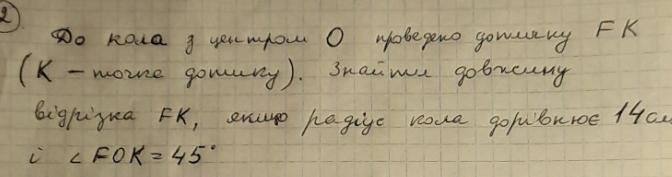 2
До кола з центром О проведено дотичну FK
(К – точка дотику). Знайти довжину
відрізка FK, якщо радіус кола дорівнює 14 см
і ∠FOK = 45°